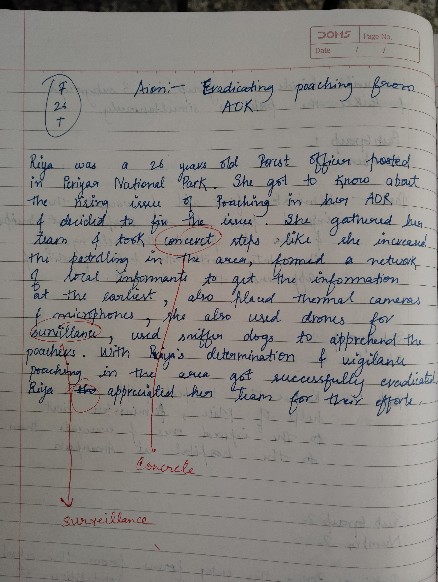 DOMS Page No.
Date / /
F
26
T
Aion:- Eradicating poaching from
AOR
Riya was a 26 years old Forest Officer posted
in Periyar National Park. She got to know about
the rising issue of Poaching in her AOR
& decided to fix the issue. She gathered her
team & took concert steps like she increased
the patrolling in the area, formed a network
of local informants to get the information
at the earliest, also placed thermal cameras
& microphones, she also used drones for
survillance, used sniffer dogs to apprehend the
poachers. With Riya's determination & vigilance
poaching in the area got successfully eradicated
Riya appreciated her team for their efforts.
Concrete
surveillance